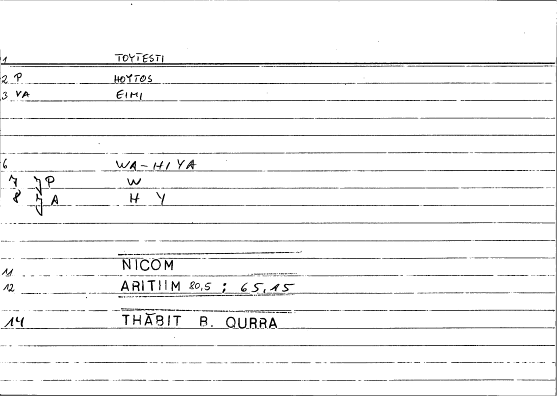 1 TOYTESTI
2 P HOYTOS
3 VA EIMI
6 WA-HIYA
7 P W
8 A H Y
11 NICOM
12 ARITIIM 80,5 ; 65,15
14 THĀBIT B. QURRA